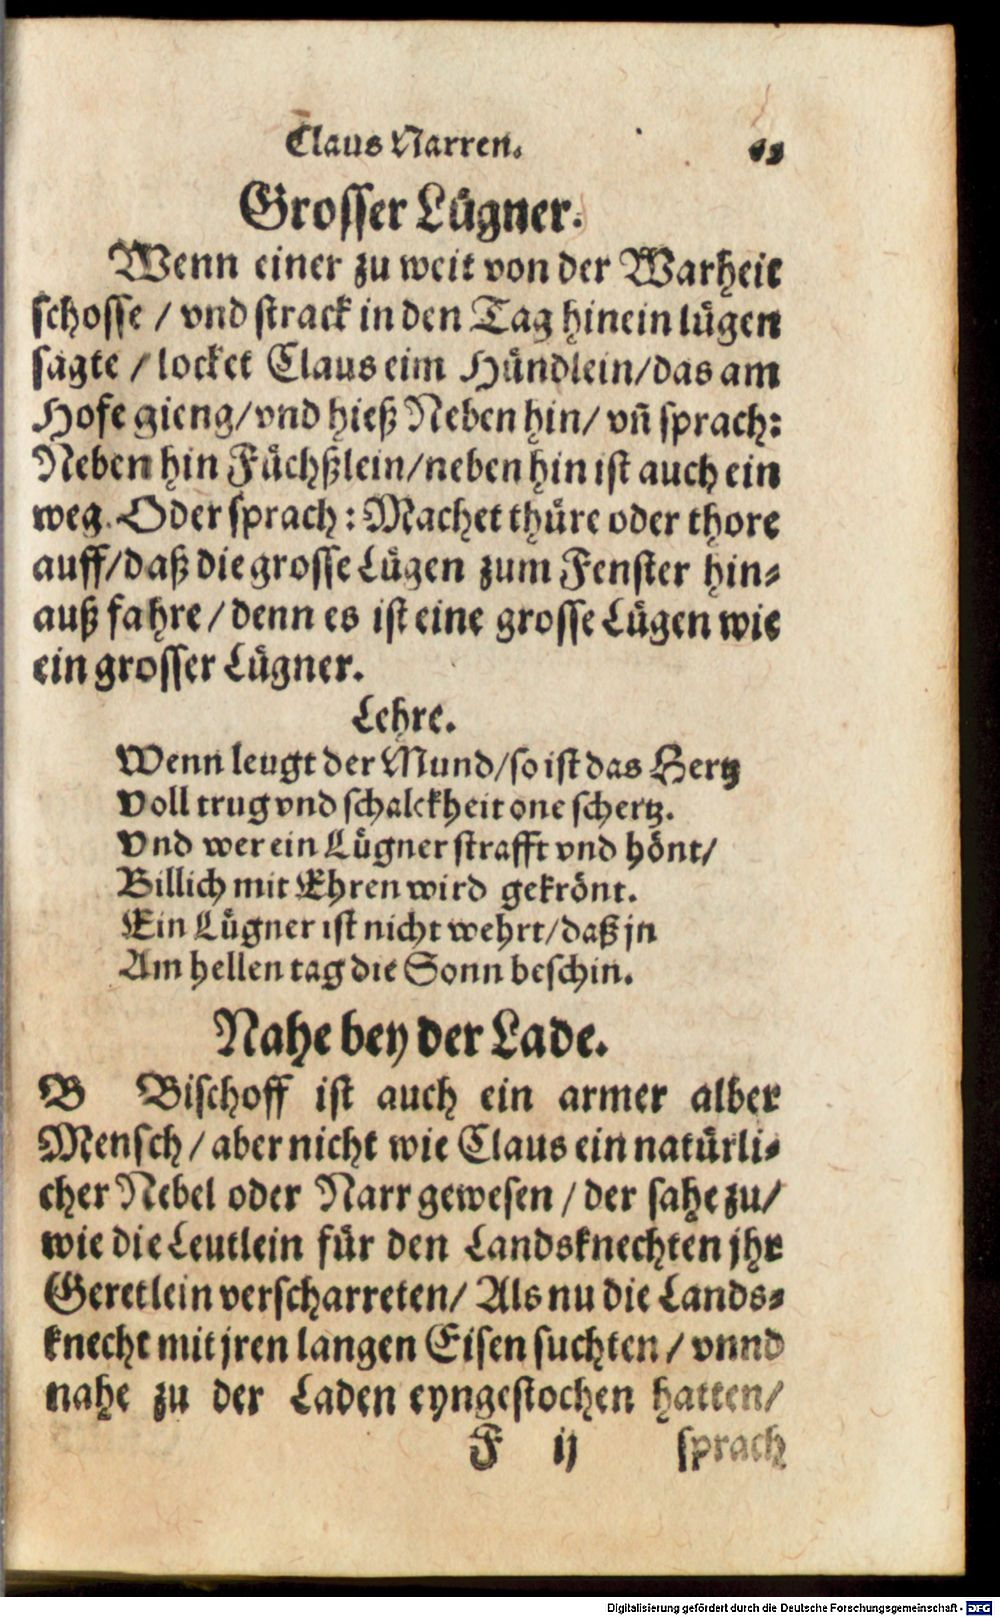 Claus Narren.
Grosser Lügner.
Wenn einer zu weit von der Warheit
schosse / vnd strack in den Tag hinein lügen
sagte / locket Claus eim Hündlein/das am
Hofe gieng/vnd hieß Neben hin/ vñ sprach:
Neben hin Füchßlein/neben hin ist auch ein
weg. Oder sprach: Machet thüre oder thore
auff/daß die grosse Lügen zum Fenster hin-
auß fahre/denn es ist eine grosse Lügen wie
ein grosser Lügner.
Lehre.
Wenn leugt der Mund/so ist das Hertz
Voll trug vnd schalckheit one schertz.
Vnd wer ein Lügner strafft vnd hönt/
Billich mit Ehren wird gekrönt.
Ein Lügner ist nicht wehrt/daß jn
Am hellen tag die Sonn beschin.
Nahe bey der Lade.
B Bischoff ist auch ein armer alber
Mensch/aber nicht wie Claus ein natürli-
cher Nebel oder Narr gewesen/der sahe zu/
wie die Leutlein für den Landsknechten jhr
Geretlein verscharreten/ Als nu die Lands-
knecht mit jren langen Eisen suchten/vnnd
nahe zu der Laden eyngestochen hatten/
F ij sprach
Digitalisierung gefördert durch die Deutsche Forschungsgemeinschaft - DFG